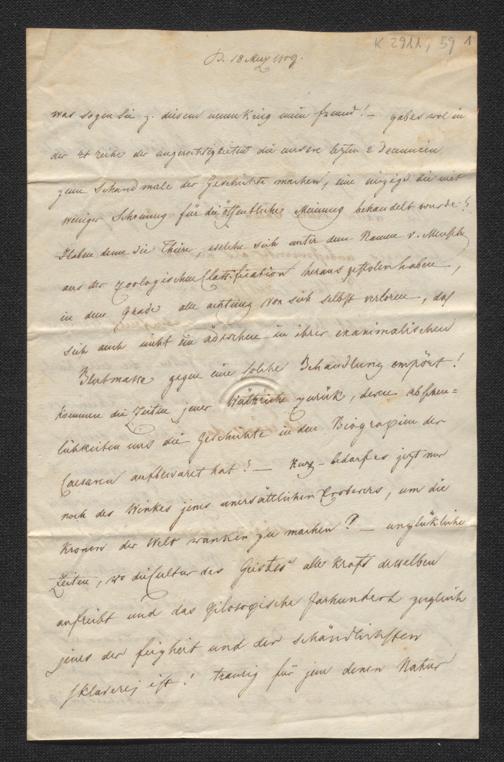 K 2911, 59 1
18 May 1809.
was sagen Sie z. diesem neuen Krieg mein freund! – gab es wol in
der reihe der ungerechtigkeiten die unsere lezten 2 Decennien
zum Schandmale der Geschichte machen, eine einzige die mit
weniger Schonung für die öffentliche Meinung behandelt wurde?
Haben denn die Thiere, welche sich unter dem Namen v. Menschen
aus der zoologischen Classification heraus gestolen haben,
in dem Grade alle achtung von sich selbst verloren, daß
sich auch nicht ein äderchen in ihrer exanimalischen
Blutmasse gegen eine solche Behandlung empört!
kommen die Zeiten jener Wütriche zurük, deren abscheu=
lichkeiten uns die Geschichte in den Biograpien der
Caesaren aufbewaret hat? – Kurz – bedarf es jezt nur
noch des Winkes jenes unersättlichen Eroberers, um die
Kronen der Welt wanken zu machen? – unglükliche
Zeiten, wo die Cultur des Geistes alle Kraft desselben
aufreibt und das filosogische Jarhundert zugleich
jenes der feigheit und der schändlichsten
sklaverej ist! traurig für jene denen Natur